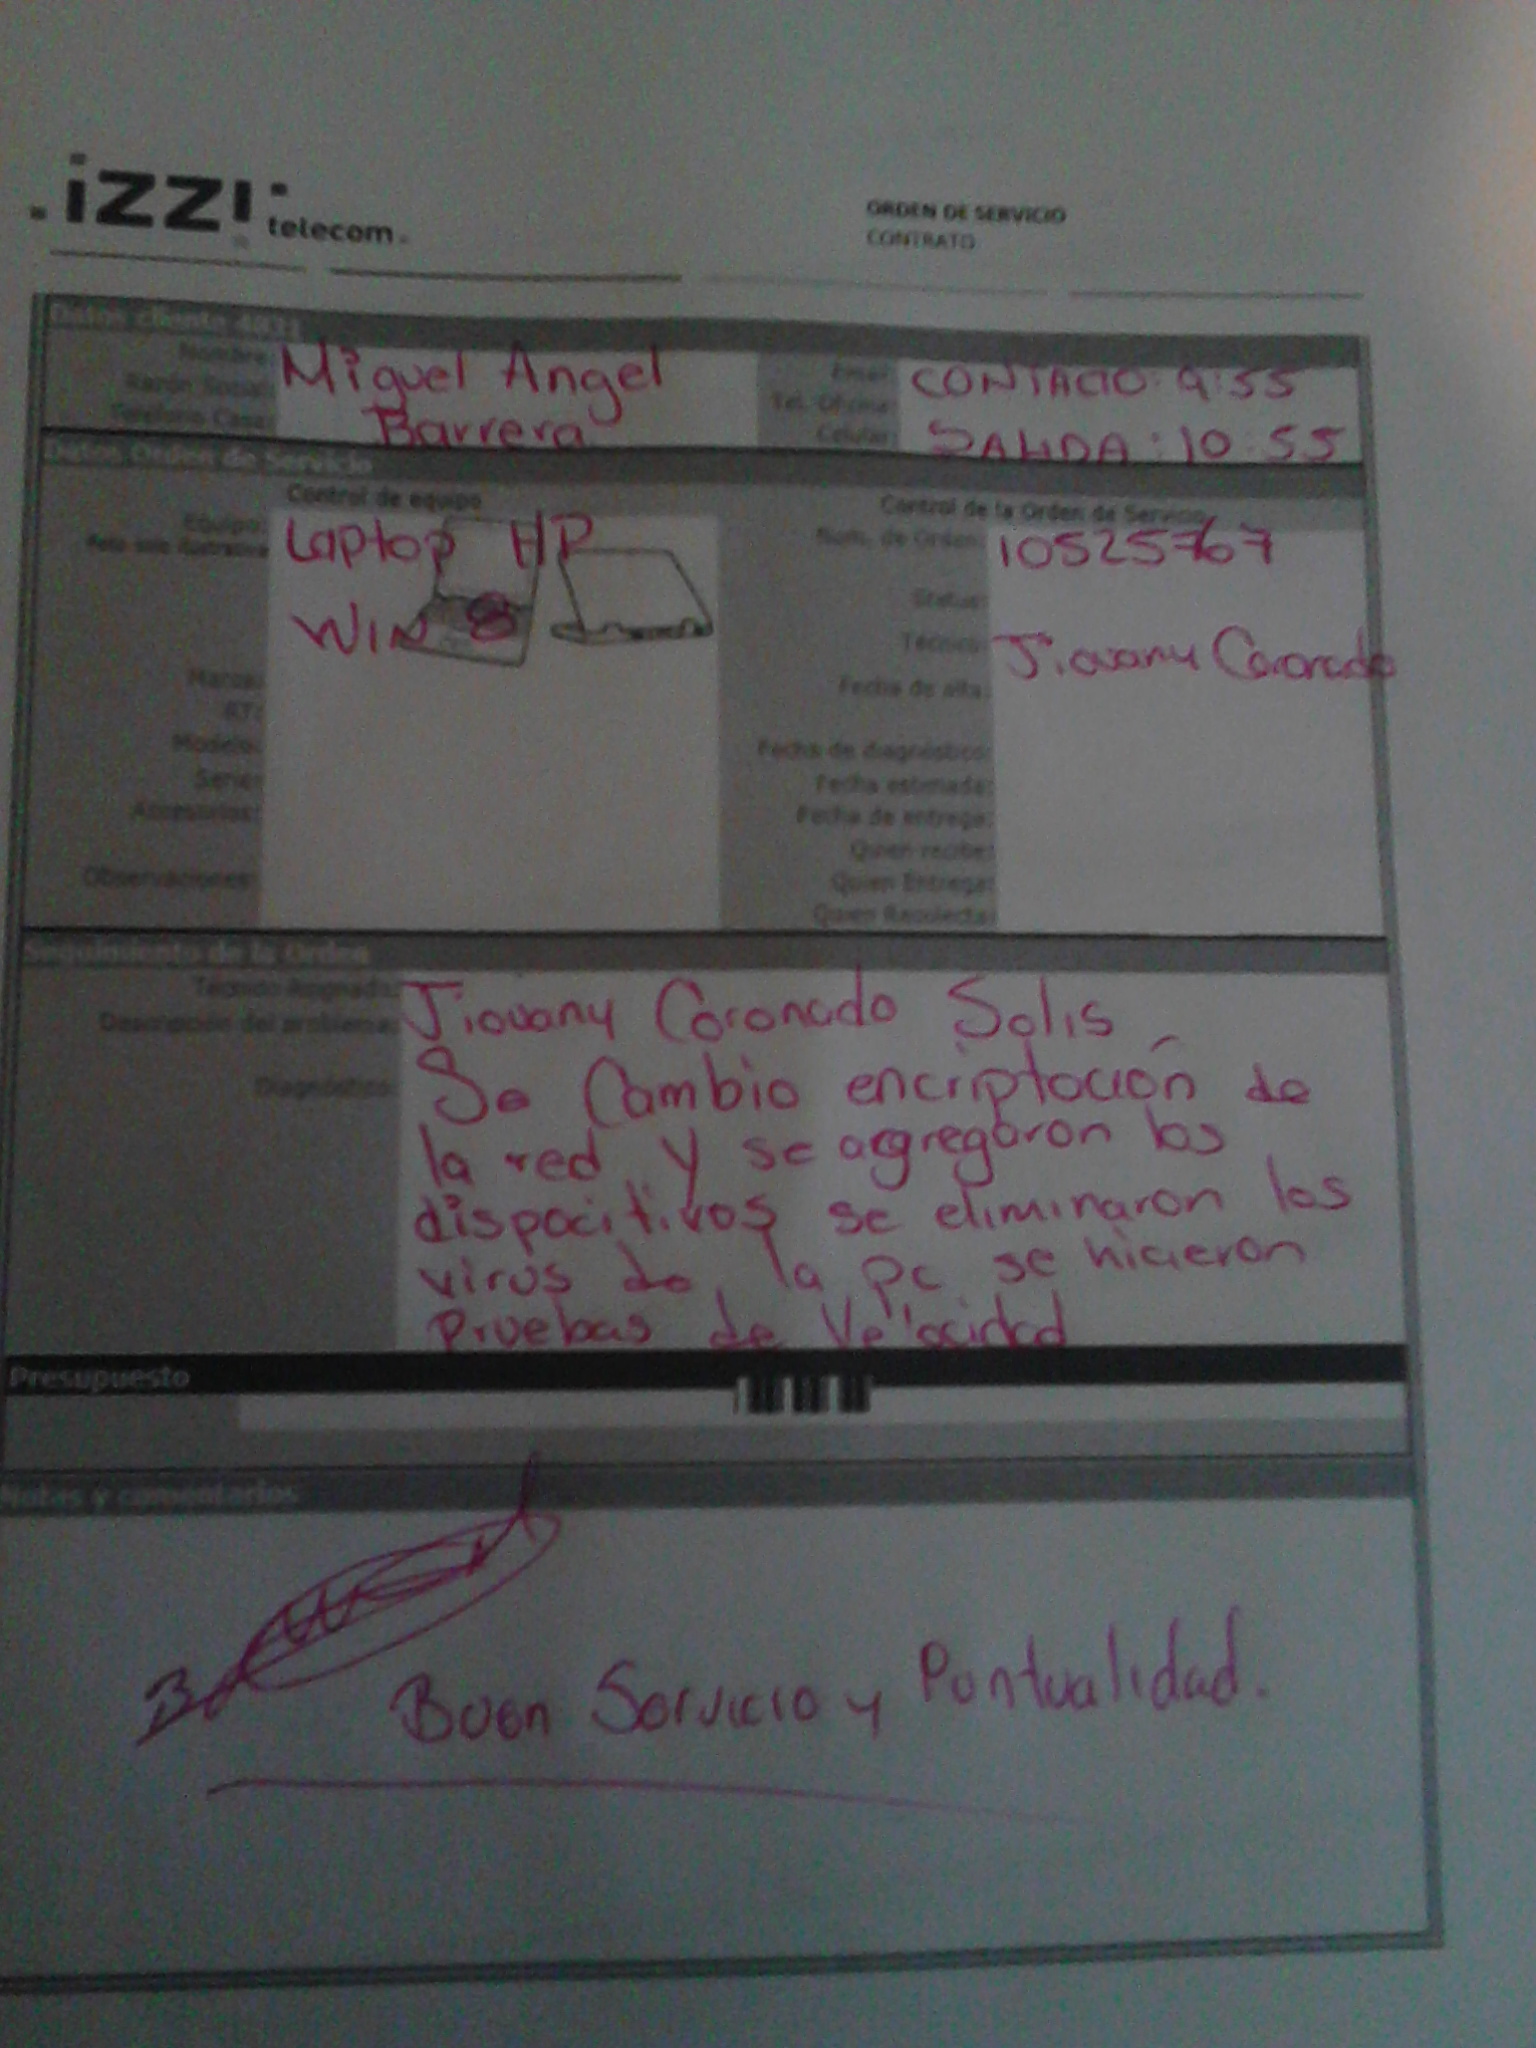 izzi telecom
ORDEN DE SERVICIO
CONTRATO
Datos cliente 4831
Nombre: Miguel Angel
Razón Social:
Barrera
Teléfono Casa:
Email: CONTACTO: 9:55
Tel. Oficina:
Celular: SALIDA: 10:55
Datos Orden de Servicio
Control de equipo
Equipo: Laptop HP
Foto solo ilustrativa
WIN 8
Marca:
Modelo:
Serie:
Accesorios:
Observaciones:
Control de la Orden de Servicio
Num. de Orden: 10525767
Status:
Técnico: Jiovany Coronado
Fecha de alta:
Fecha de diagnóstico:
Fecha estimada:
Fecha de entrega:
Quien recibe:
Quien Entrega:
Quien Recolecta:
Seguimiento de la Orden
Técnico Asignado: Jiovany Coronado Solis
Descripción del problema:
Diagnóstico: Se Cambio encriptación de
la red y se agregaron los
dispocitivos se eliminaron los
virus de la pc se hicieron
pruebas de Velocidad
Presupuesto
Notas y comentarios
Buen Servicio y Pontualidad.